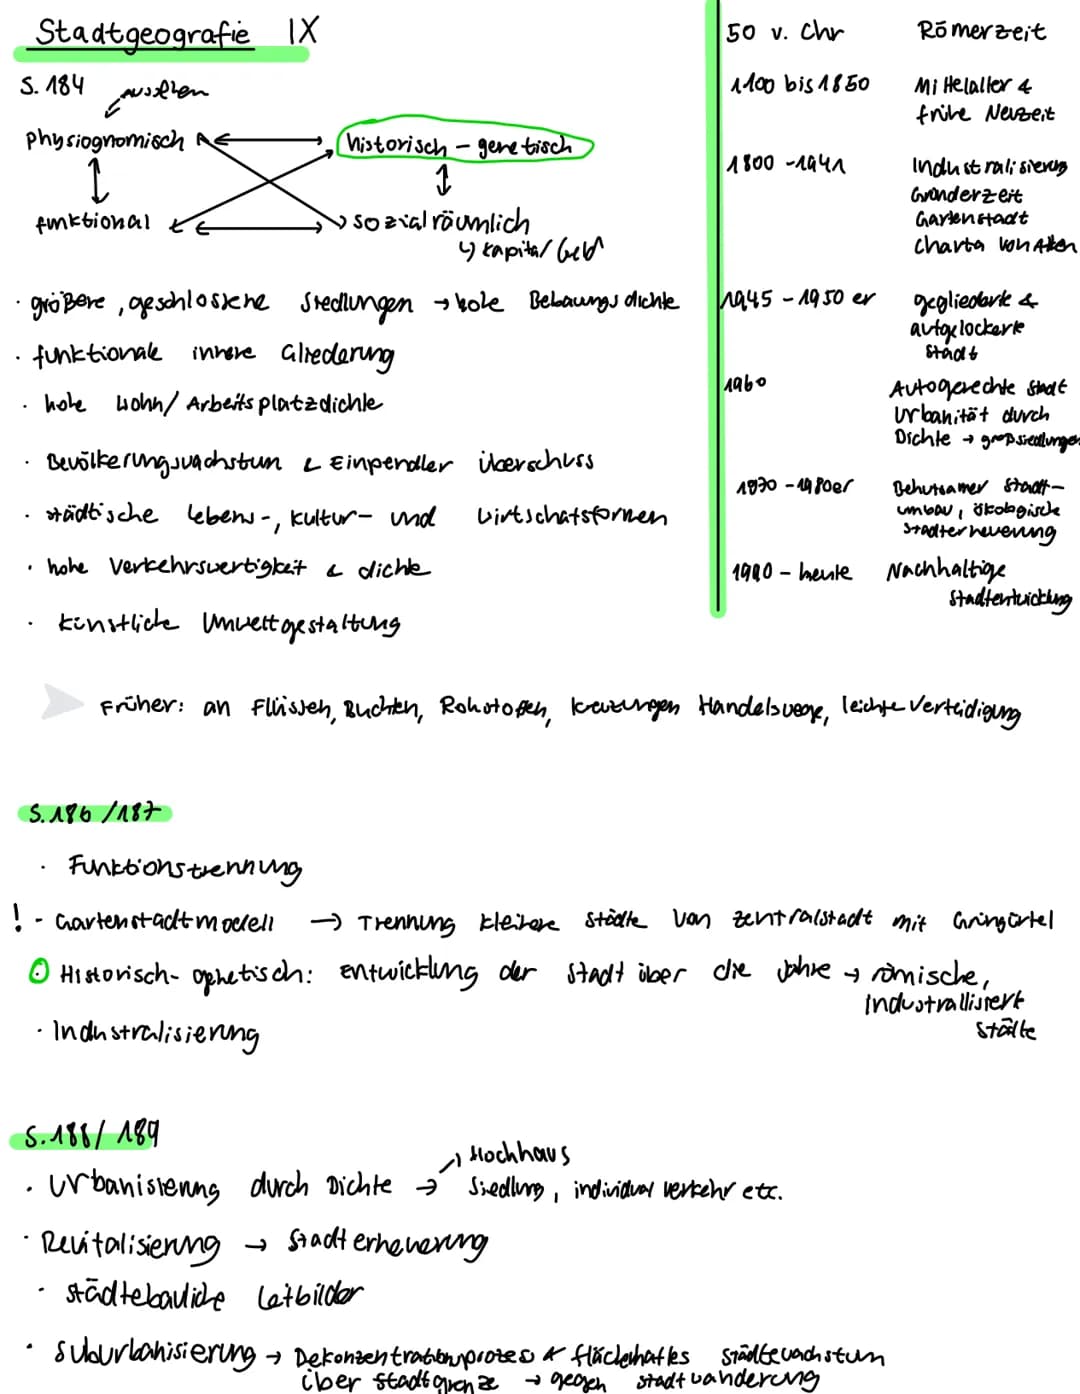 Stadtgeografie IX
S. 184
aussehen
Physiognomisch
historisch - genetisch
funktional
sozialräumlich
↳ Kapital/Geld
· größere, geschlossene Siedlungen → hohe Bebauungsdichte
· funktionale innere Gliederung
· hohe Wohn/Arbeitsplatzdichte
· Bevölkerungswachstum & Einpendlerüberschuss
· städtische Lebens-, Kultur- und Wirtschaftsformen
· hohe Verkehrswertigkeit & dichte
· künstliche Umweltgestaltung
50 v. Chr Römerzeit
1100 bis 1850 Mittelalter &
frühe Neuzeit
1800 - 1941 Industralisierung
Gründerzeit
Gartenstadt
Charta von Athen
1945 - 1950er gegliederte &
aufgelockerte
Stadt
1960 Autogerechte Stadt
Urbanität durch
Dichte → großsiedlungen
1970 - 1980er Behutsamer Stadt-
umbau, ökologische
Stadterneuerung
1990 - heute Nachhaltige
Stadtentwicklung
Früher: an Flüssen, Buchten, Rohstoffen, kreuzungen Handelswege, leichte Verteidigung
S. 186/187
· Funktionstrennung
! - Gartenstadtmodell → Trennung kleinere Städte von zentralstadt mit Grüngürtel
Historisch-genetisch: entwicklung der Stadt über die Jahre → römische,
Industrallisiert
Städte
· Industralisierung
S. 188/189
· Urbanisierung durch Dichte → Hochhaus
Siedlung, individual verkehr etc.
· Revitalisierung → Stadterneuerung
· städtebauliche Leitbilder
· Suburbanisierung → Dekonzentrationsprozess & flächenhaftes Städtewachstum
über Stadtgrenze → gegen Stadtwanderung